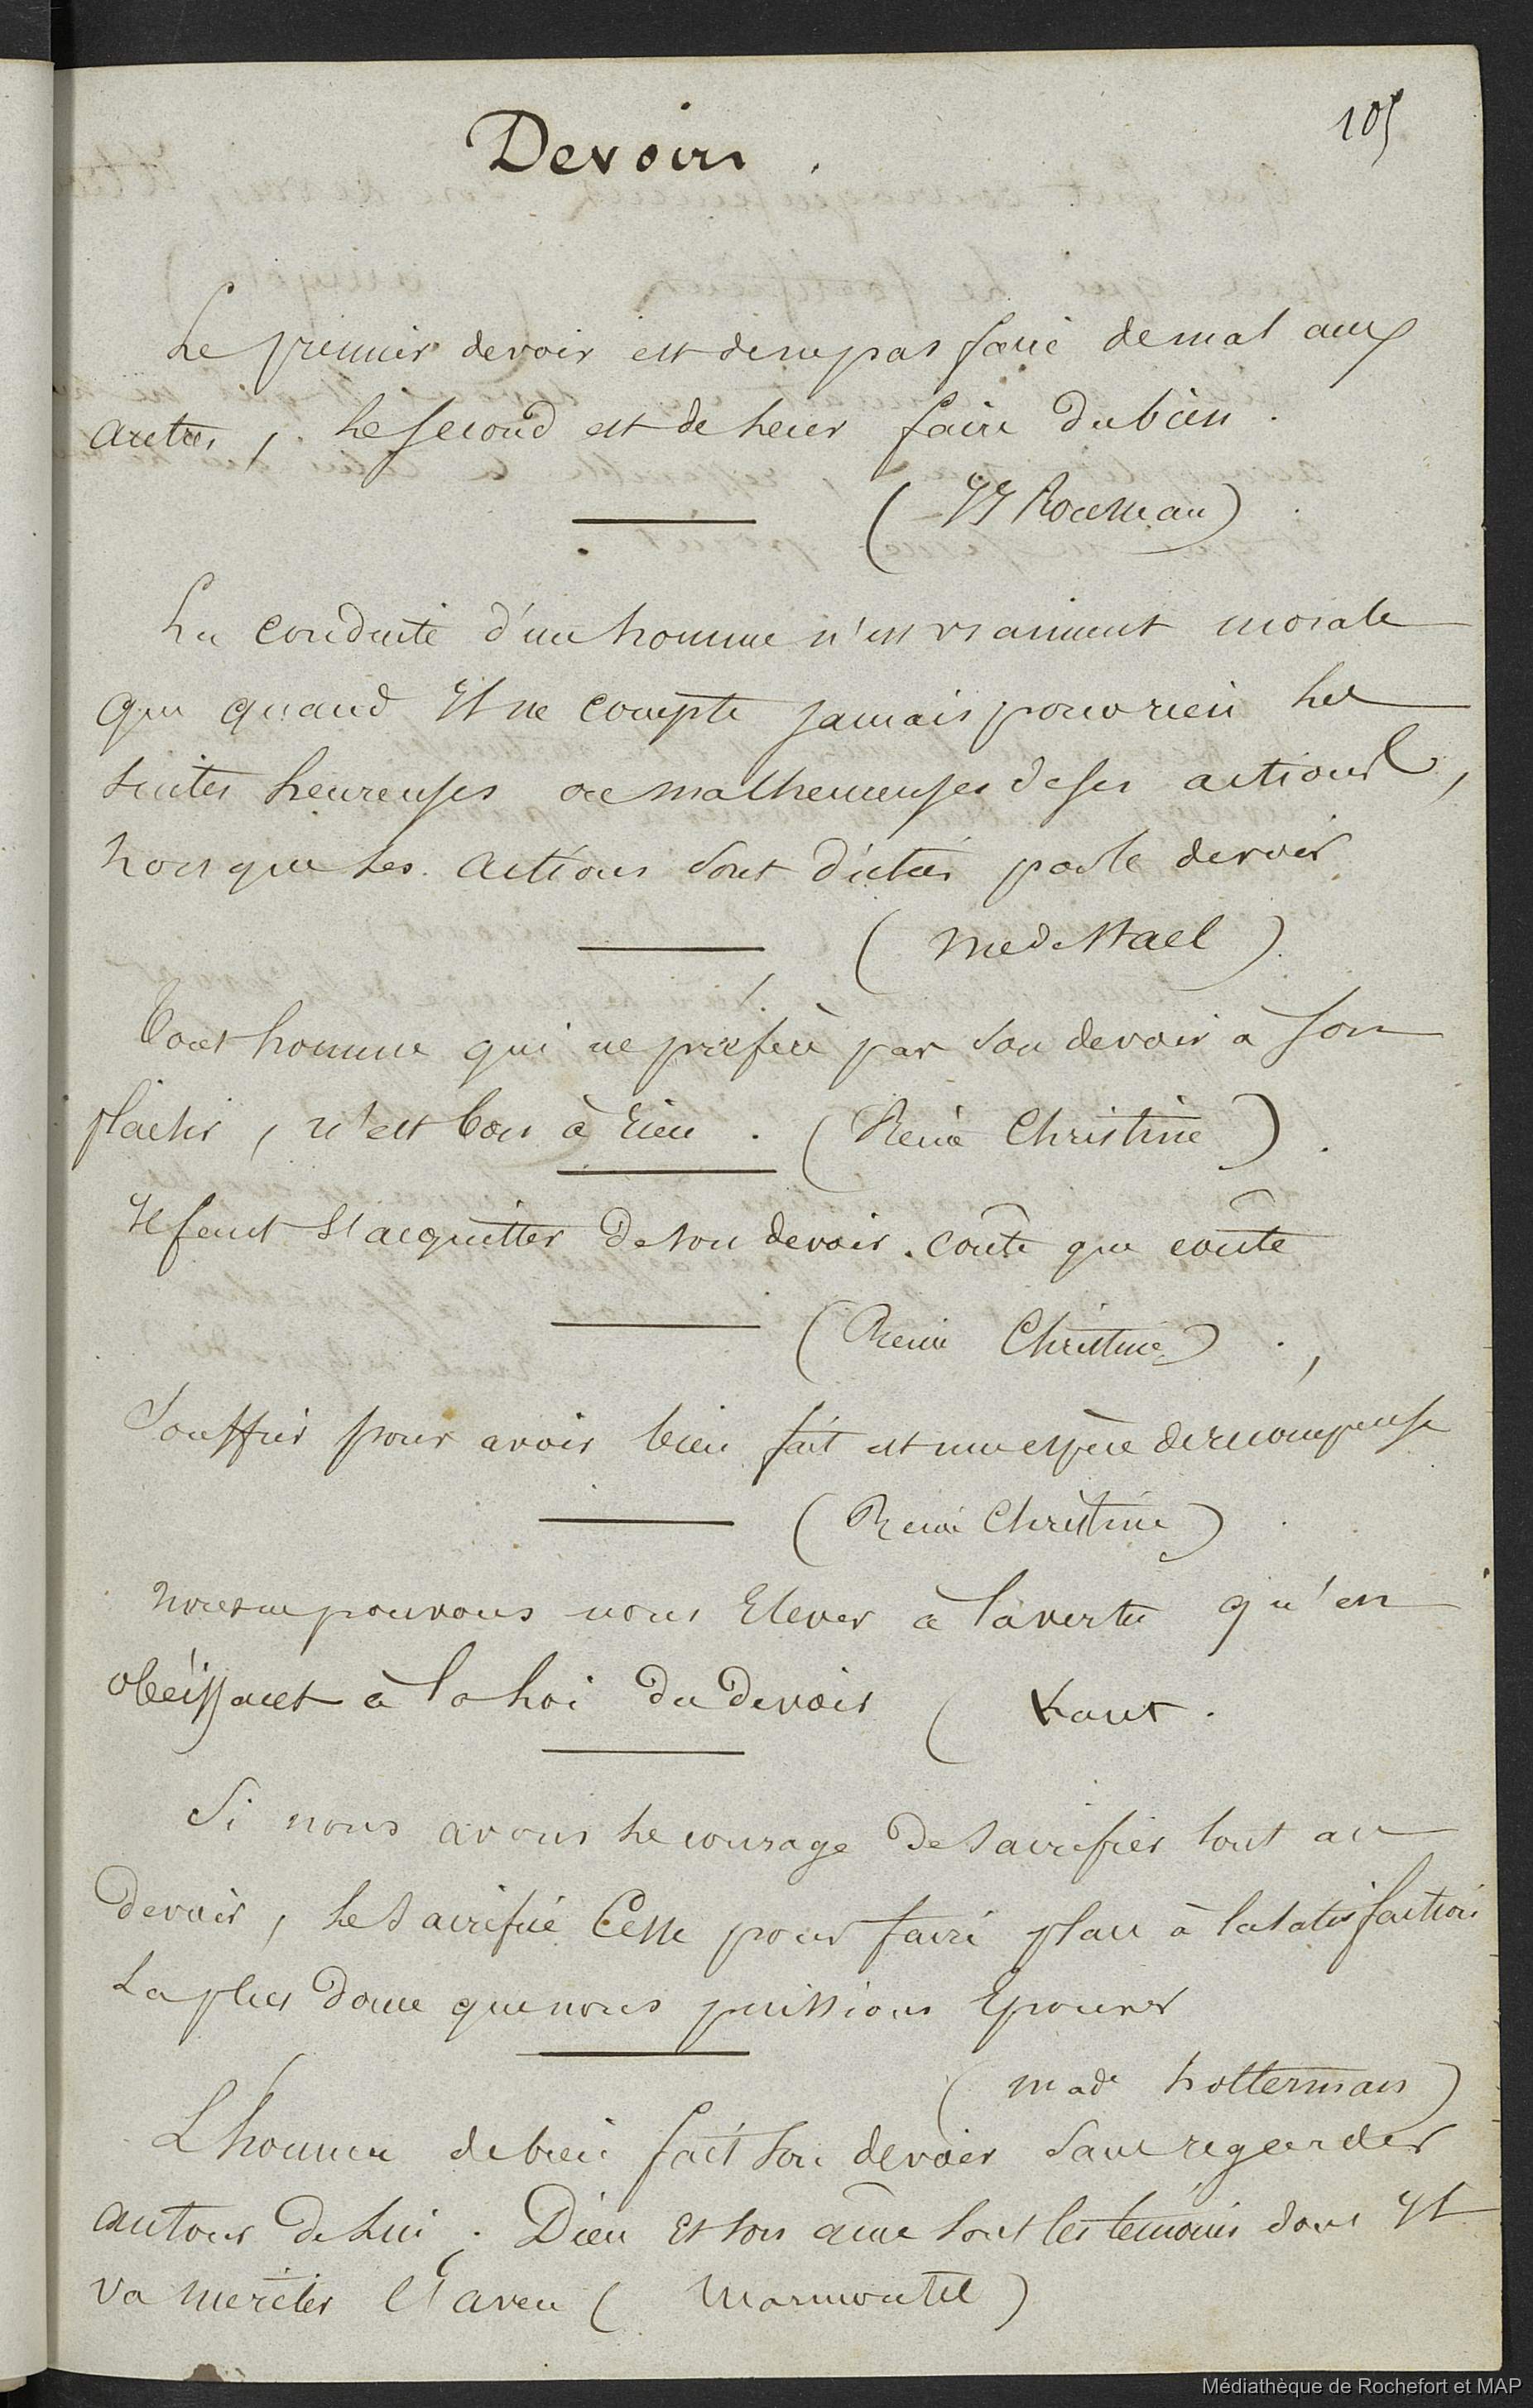 105
Devoirs.
Le premier devoir est de ne pas faire de mal aux
autres, le second est de leur faire du bien.
(JJ Rousseau)
La conduite d'un homme n'est vraiment morale
que quand Il ne compte jamais pour rien les
suites heureuses ou malheureuses de ses actions,
lorsque les actions sont dictées par le devoir
(Me de Stael)
Tout homme qui ne préfère pas son devoir à son
plaisir, n'est bon à rien. (Reine Christine).
Il faut s'acquitter de son devoir. coûte que coûte
(Reine Christine).
Souffrir pour avoir bien fait est une espèce de récompense
(Reine Christine).
nous ne pouvons nous Elever à la vertu qu'en
obéissant à la loi du devoir (Kant.
Si nous avons le courage de sacrifier tout au
devoir, le sacrifice Cesse pour faire place à la satisfaction
La plus douce que nous puissions Eprouver
(Made )
L'homme de bien fait son devoir sans regarder
autour de lui; Dieu Et son âme sont les témoins dont Il
va mériter l'aveu (Marmontel)
Médiathèque de Rochefort et MAP